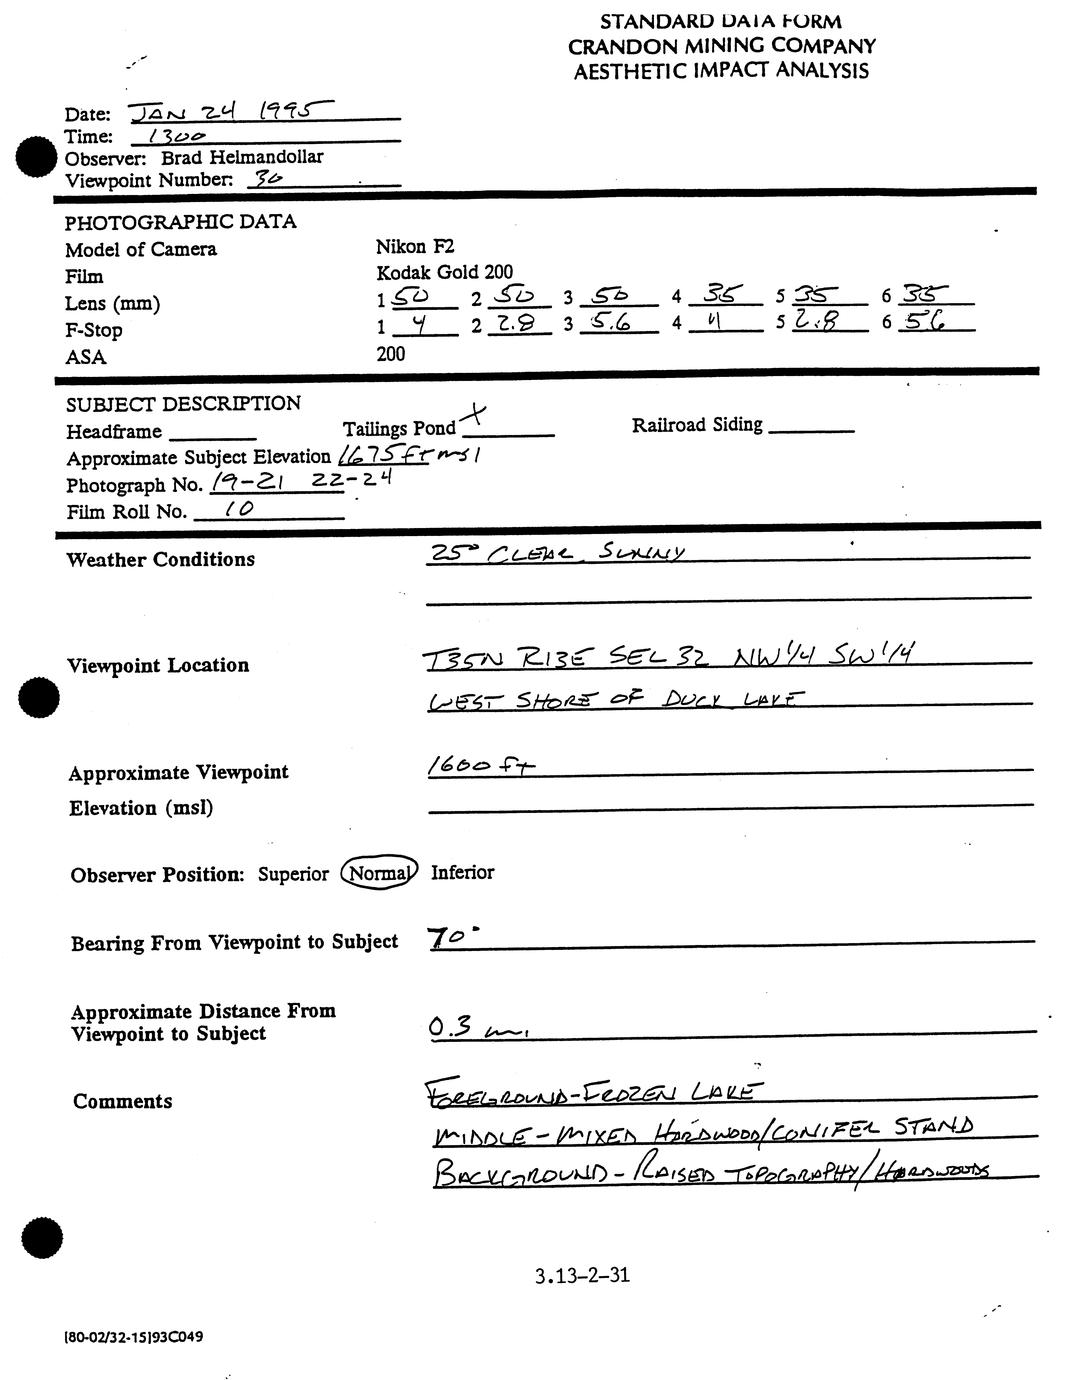 STANDARD DATA FORM
CRANDON MINING COMPANY
AESTHETIC IMPACT ANALYSIS
Date: JAN 24 1995
Time: 1300
Observer: Brad Helmandollar
Viewpoint Number: 30
PHOTOGRAPHIC DATA
Model of Camera Nikon F2
Film Kodak Gold 200
Lens (mm) 1 50 2 50 3 50 4 35 5 35 6 35
F-Stop 1 4 2 2.8 3 5.6 4 4 5 2.8 6 5.6
ASA 200
SUBJECT DESCRIPTION
Headframe Tailings Pond X Railroad Siding
Approximate Subject Elevation 1675 ft msl
Photograph No. 19-21 22-24
Film Roll No. 10
Weather Conditions 25° CLEAR SUNNY
Viewpoint Location T35N R13E SEC 32 NW 1/4 SW 1/4
WEST SHORE OF DUCK LAKE
Approximate Viewpoint 1600 ft
Elevation (msl)
Observer Position: Superior Normal Inferior
Bearing From Viewpoint to Subject 70°
Approximate Distance From
Viewpoint to Subject 0.3 mi
Comments FOREGROUND-FROZEN LAKE
MIDDLE-MIXED HARDWOOD/CONIFER STAND
BACKGROUND-RAISED TOPOGRAPHY/HARDWOODS
3.13-2-31
[80-02/32-15]93C049